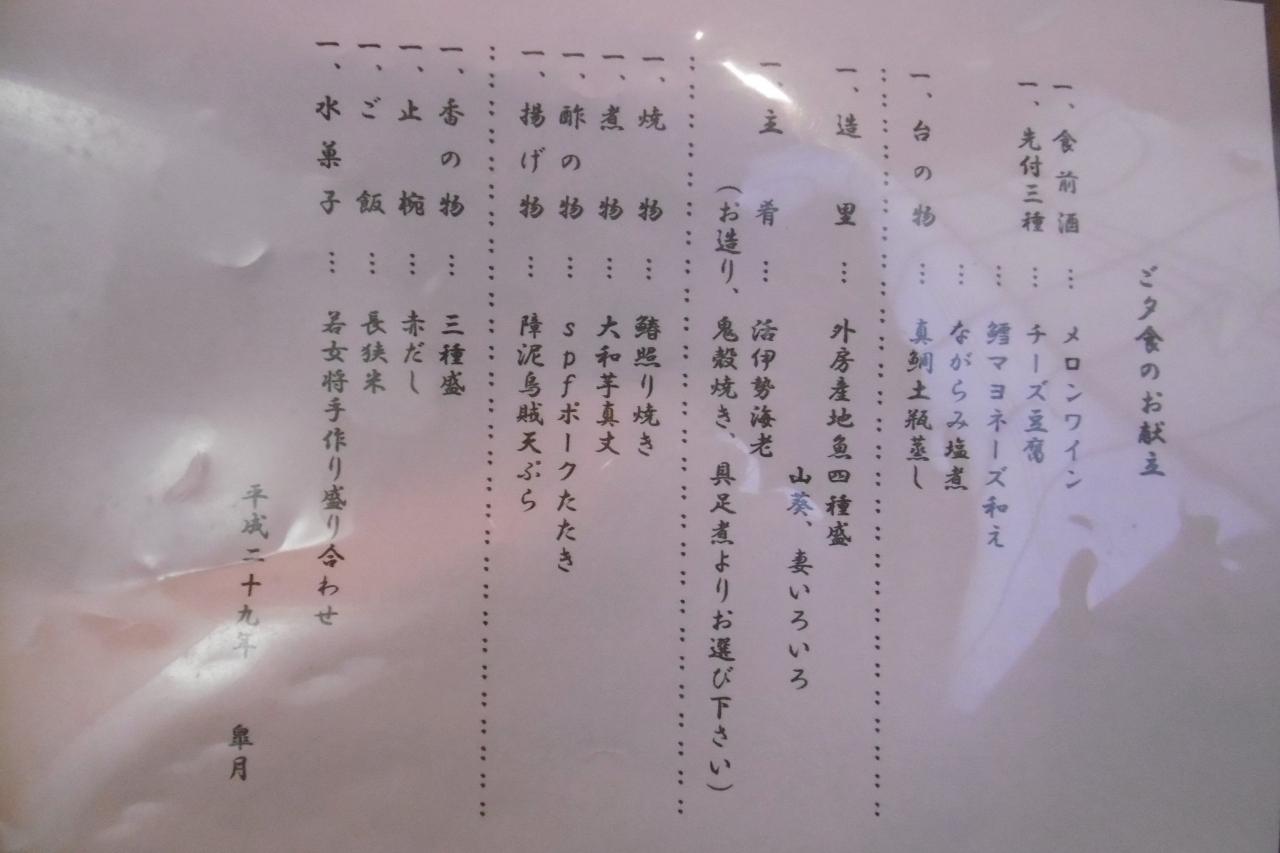 ご夕食のお献立
一、食前酒 … メロンワイン
一、先付三種 … チーズ豆腐
… 鱈マヨネーズ和え
ながらみ塩煮
一、台の物 … 真鯛土瓶蒸し
一、造里 … 外房産地魚四種盛
山葵、妻いろいろ
一、主肴 … 活伊勢海老
(お造り、鬼殻焼き、具足煮よりお選び下さい)
一、焼物 … 鰆照り焼き
一、煮物 … 大和芋真丈
一、酢の物 … spfポークたたき
一、揚げ物 … 障泥烏賊天ぷら
一、香の物 … 三種盛
一、止椀 … 赤だし
一、ご飯 … 長狭米
一、水菓子 … 若女将手作り盛り合わせ
平成二十九年 皐月